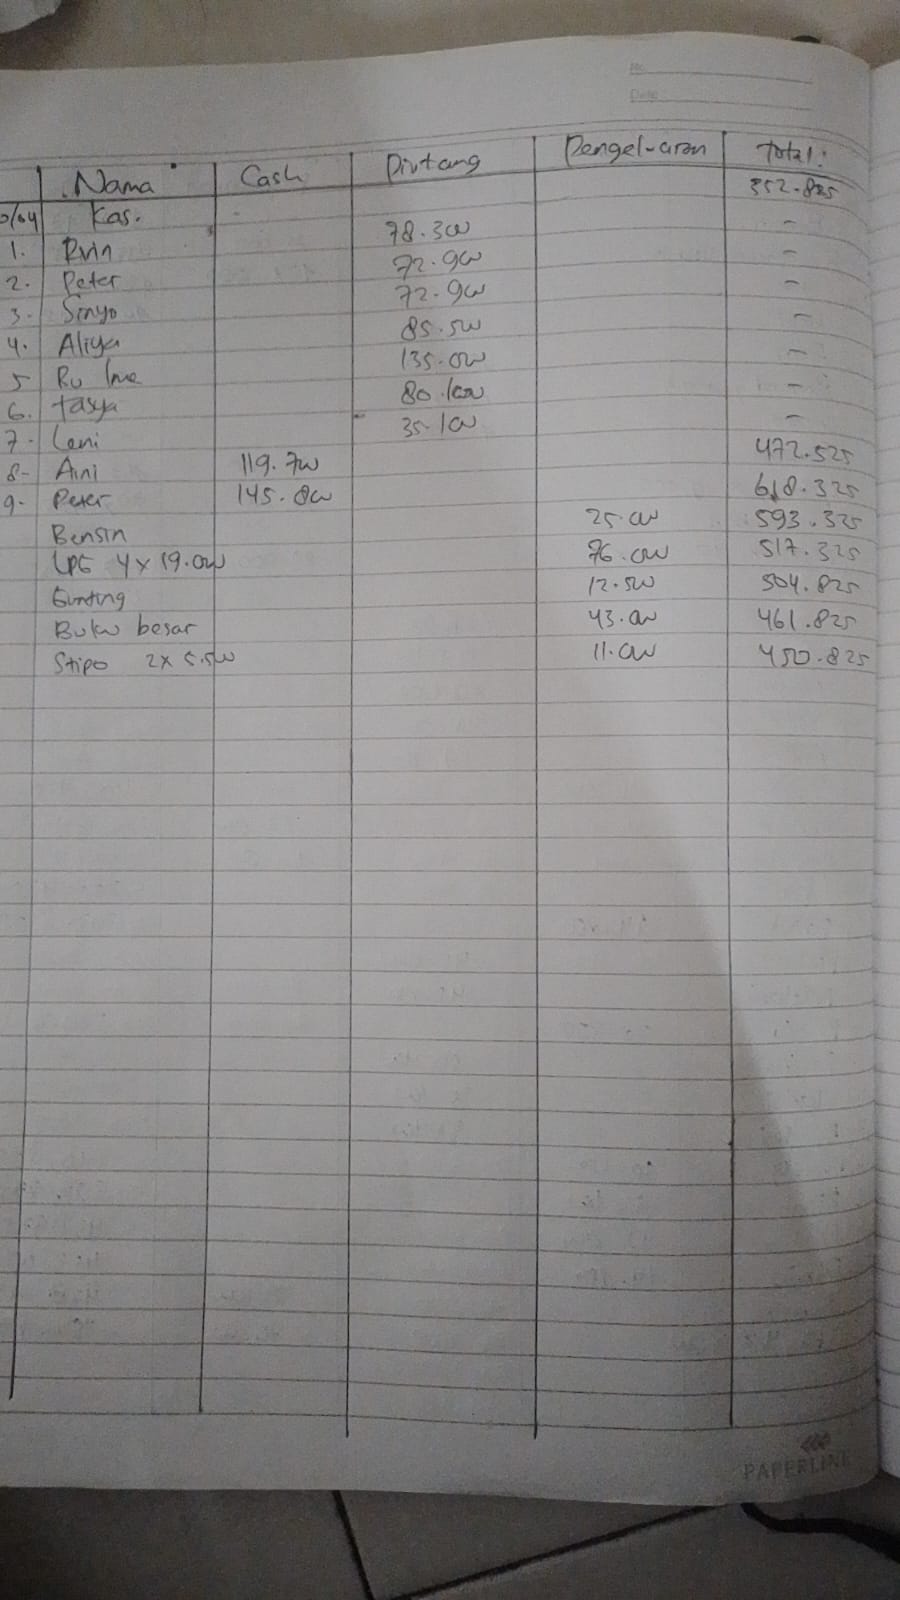 No
Date
Nama Cash Piutang Pengeluaran Total:
0/04 Kas. 352.825
1. Rvin 78.300 -
2. Peter 72.900 -
3. Sinyo 72.900 -
4. Aliya 85.500 -
5 Bu 135.000 -
6. Tasya 80.100 -
7. Leni 35.100 -
8- Aini 119.700 472.525
9. Peter 145.800 618.325
Bensin 25.000 593.325
LPG 4 x 19.000 76.000 517.325
Gunting 12.500 504.825
Buku besar 43.000 461.825
Stipo 2 x 5.500 11.000 450.825
PAPERLINE